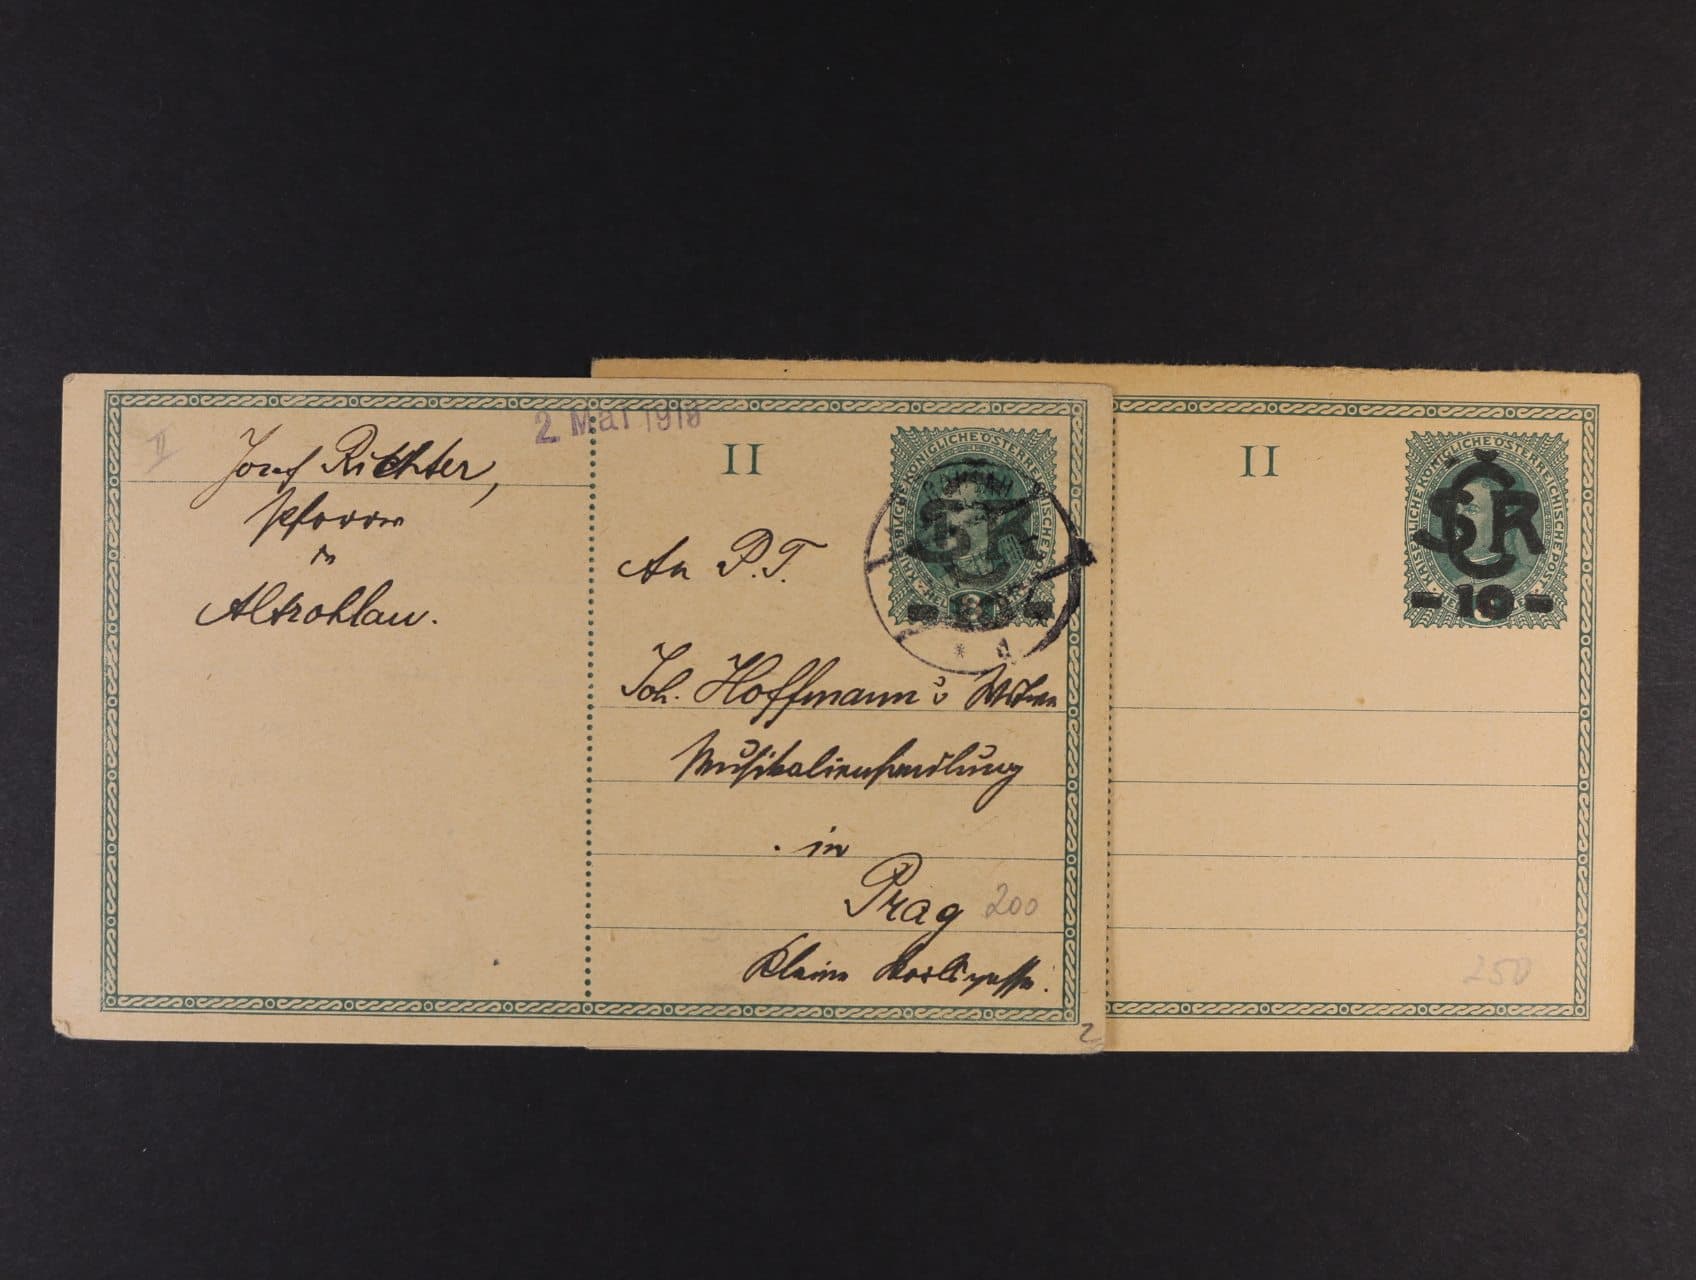 2 Mai 1919
II
Josef Richter,
Pfarrer
in
Altrohlau.
II
An P.T.
Joh. Hoffmann's Witwe
Musikalienhandlung
in
Prag 200
Kleine Karlsgasse.
2
KAISERLICHE KÖNIGLICHE ÖSTERREICHISCHE POST
ČSR
- 10 -
II
KAISERLICHE KÖNIGLICHE ÖSTERREICHISCHE POST
ČSR
- 10 -
250